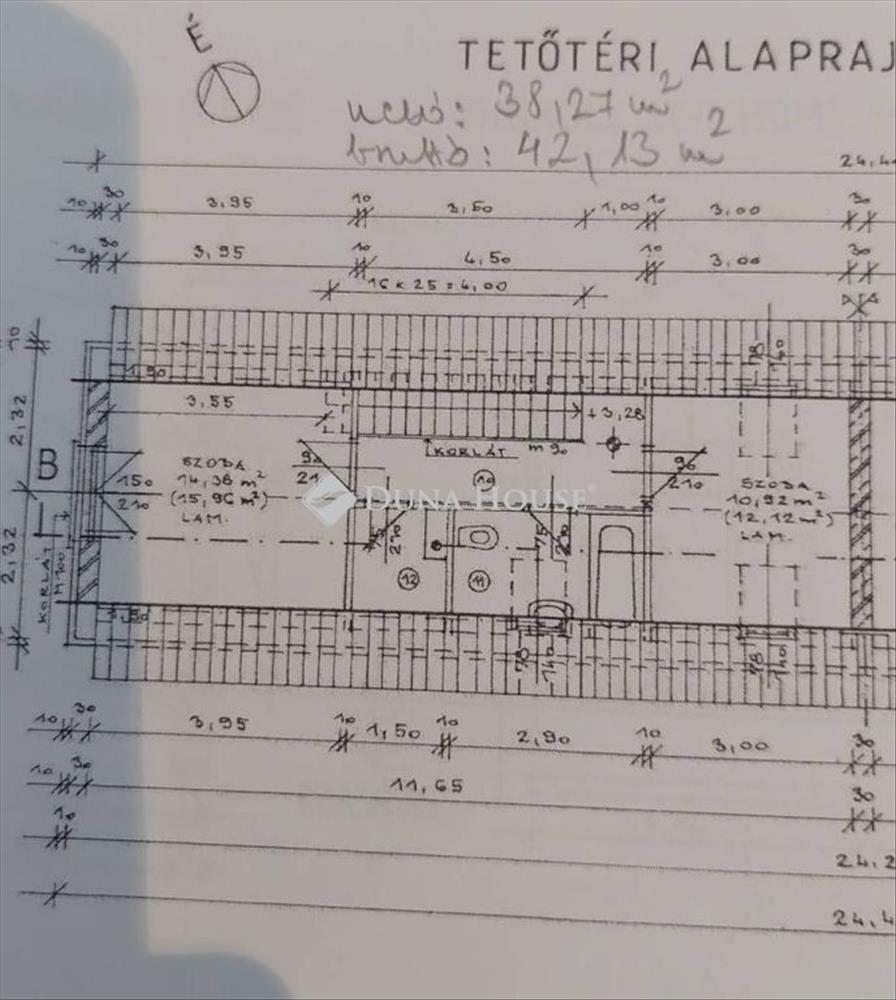 É
TETŐTÉRI ALAPRAJ
nettó: 38,27 m²
bruttó: 42,13 m²
24,4
10 30 3,95 10 3,50 1,00 10 3,00 30
10 30 3,95 10 4,50 10 3,00 30
16 x 25 = 4,00
10
1,90
78
140
3,55
+3,28
2,32
KORLÁT m 90
B
SZOBA
14,36 m²
(15,96 m²)
LAM.
150
210
90
21
10
DUNA HOUSE
90
210
SZOBA
10,92 m²
(12,12 m²)
LAM.
75
210
75
210
2,32
KORLÁT
M 100
12
11
78
140
78
140
10 30 3,95 10 1,50 10 2,90 10 3,00 30
10 30 11,65 30
10
24,2
24,4